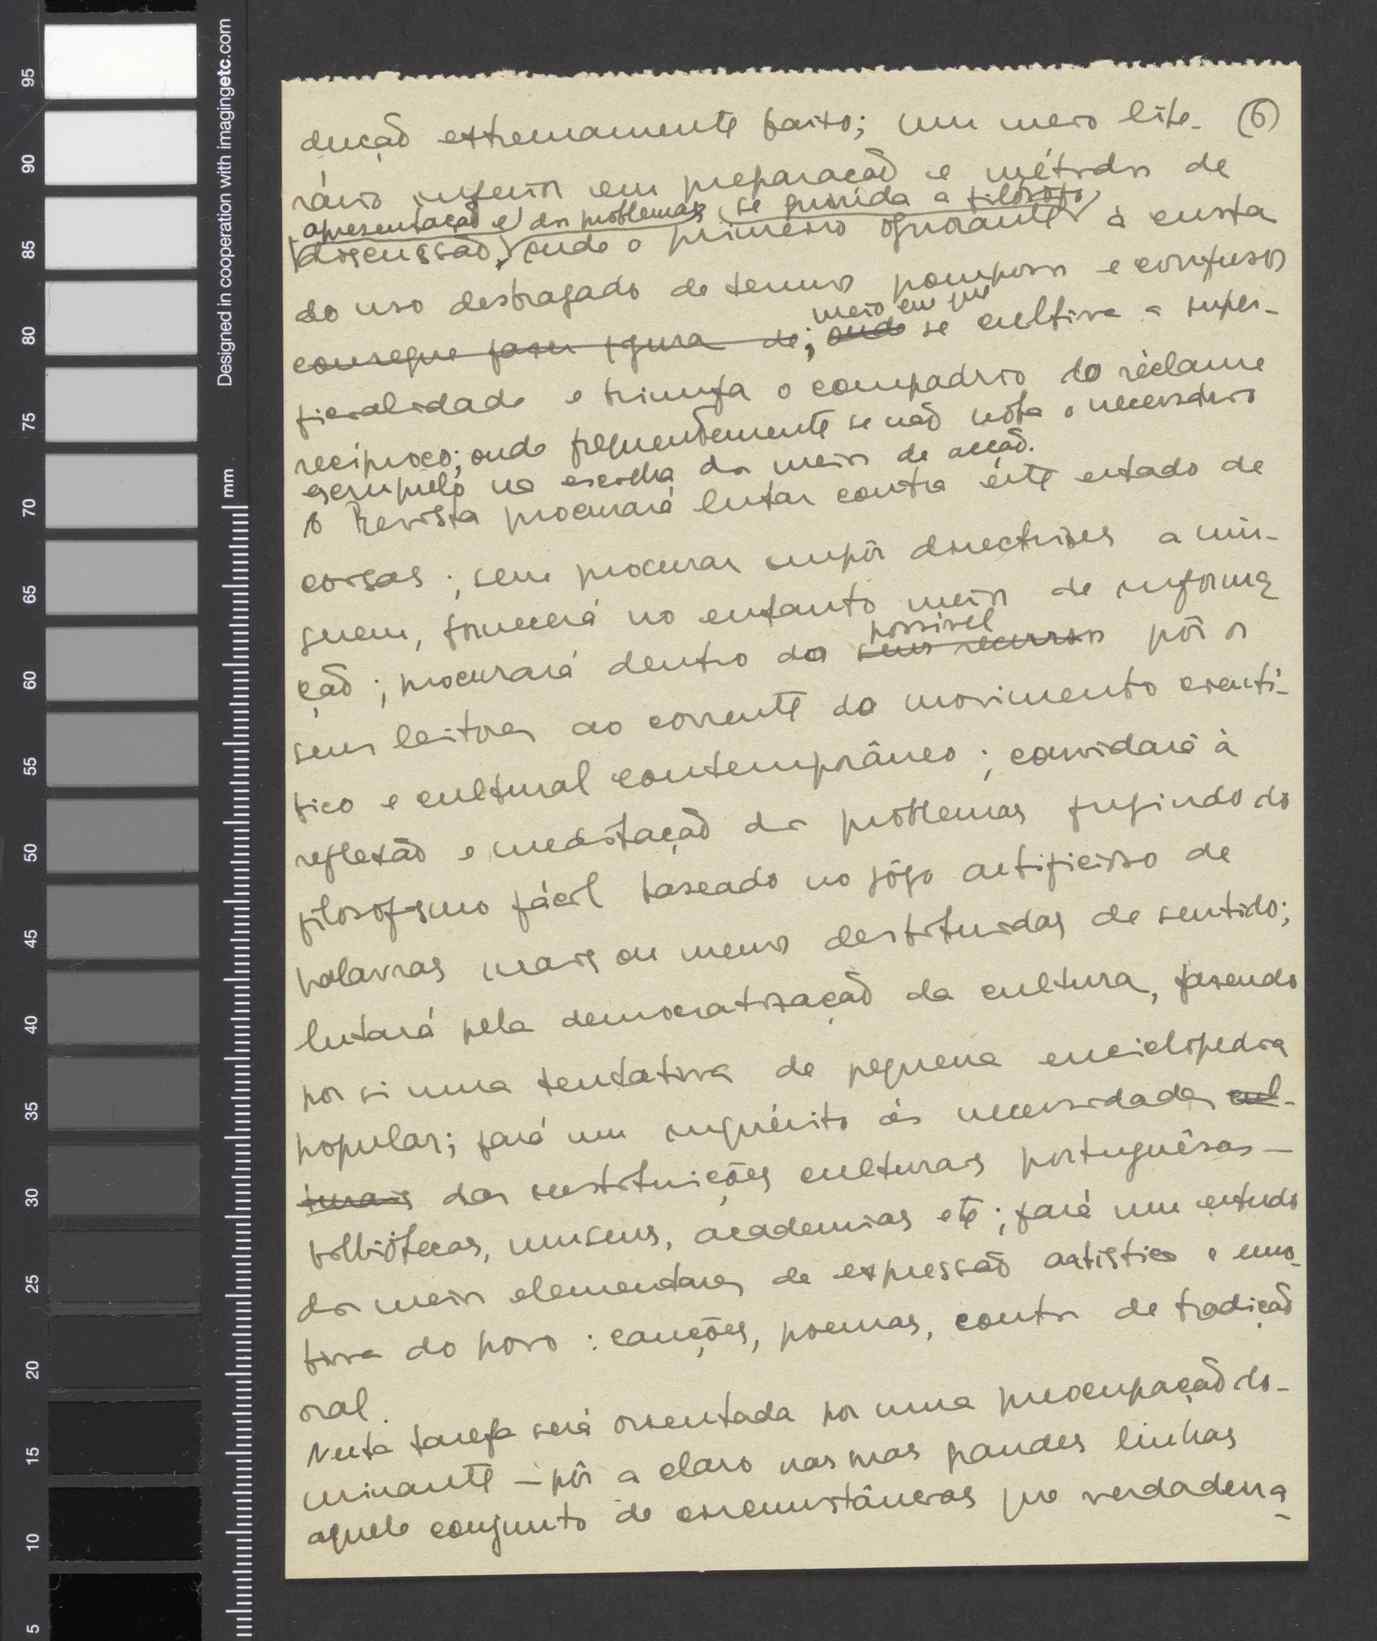 dução extremamente baixo; um meio lite- (6)
rário inferior em preparação e métodos de
apresentação e dos problemas, se guinda a filósofo
discussão, onde o primeiro ignorante à custa
do uso desbragado de termos pomposos e confusos
meio em que
consegue fazer figura de; onde se cultiva a super-
ficialidade e triunfa o compadrio do réclame
recíproco; onde frequentemente se não nota o necessário
escrúpulo na escolha dos meios de acção.
A Revista procurará lutar contra êste estado de
coisas; sem procurar impôr directrizes a nin-
guem, fornecerá no entanto meios de informa
ção; procurará dentro do seus recursos pôr os
possivel
seus leitores ao corrente do movimento cientí-
fico e cultural contemporâneo; convidará à
reflexão e meditação dos problemas fugindo do
filosofismo fácil baseado no jôgo artificioso de
palavras mais ou menos destituidas de sentido;
lutará pela democratização da cultura, fazendo
por si uma tentativa de pequena enciclopedia
popular; fará um inquérito às necessidades cul-
turais das instituições culturais portuguêsas —
bibliotecas, museus, academias etc; fará um estudo
dos meios elementares de expressão artistica e emo-
tiva do povo: canções, poemas, contos de tradição
oral.
Nesta tarefa será orientada por uma preocupação do-
minante — pôr a claro nas suas grandes linhas
aquele conjunto de circunstâncias que verdadeira-
Designed in cooperation with imagingetc.com
mm
95
90
85
80
75
70
65
60
55
50
45
40
35
30
25
20
15
10
5